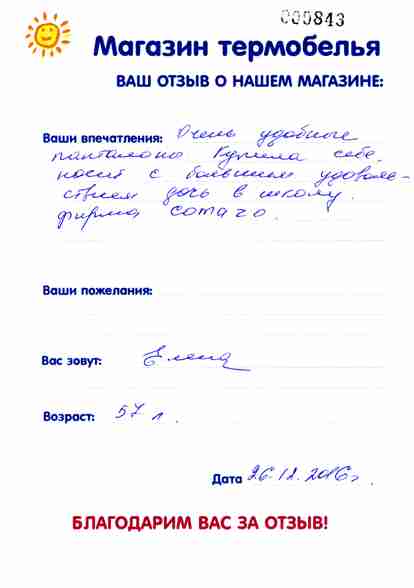 000843
Магазин термобелья
ВАШ ОТЗЫВ О НАШЕМ МАГАЗИНЕ:
Ваши впечатления: Очень удобные
панталоны Купила себе.
носит с большим удоволь-
ствием дочь в школу.
фирма comazo.
Ваши пожелания:
Вас зовут: Елена
Возраст: 57 л.
Дата 26.12.2016г.
БЛАГОДАРИМ ВАС ЗА ОТЗЫВ!